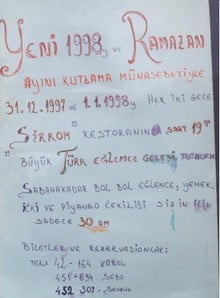 YENİ 1998y ve RAMAZAN
AYINI KUTLAMA MÜNASEBETİYLE
31.12.1997 ve 1.1.1998y HER İKİ GECE
"ŞİRKOM" RESTORANINDA SAAT 19
BÜYÜK TÜRK EĞLENCE GECESİ
SABAHAKADAR BOL BOL EĞLENCE, YEMEK,
İÇKİ VE PİYANGO ÇEKİLİŞİ SİZ İN
SADECE 30 DM
BİLETLER VE REZERVASİONLAR:
TEL: 42-164 VAROL
451-694 SEBO
452 507-